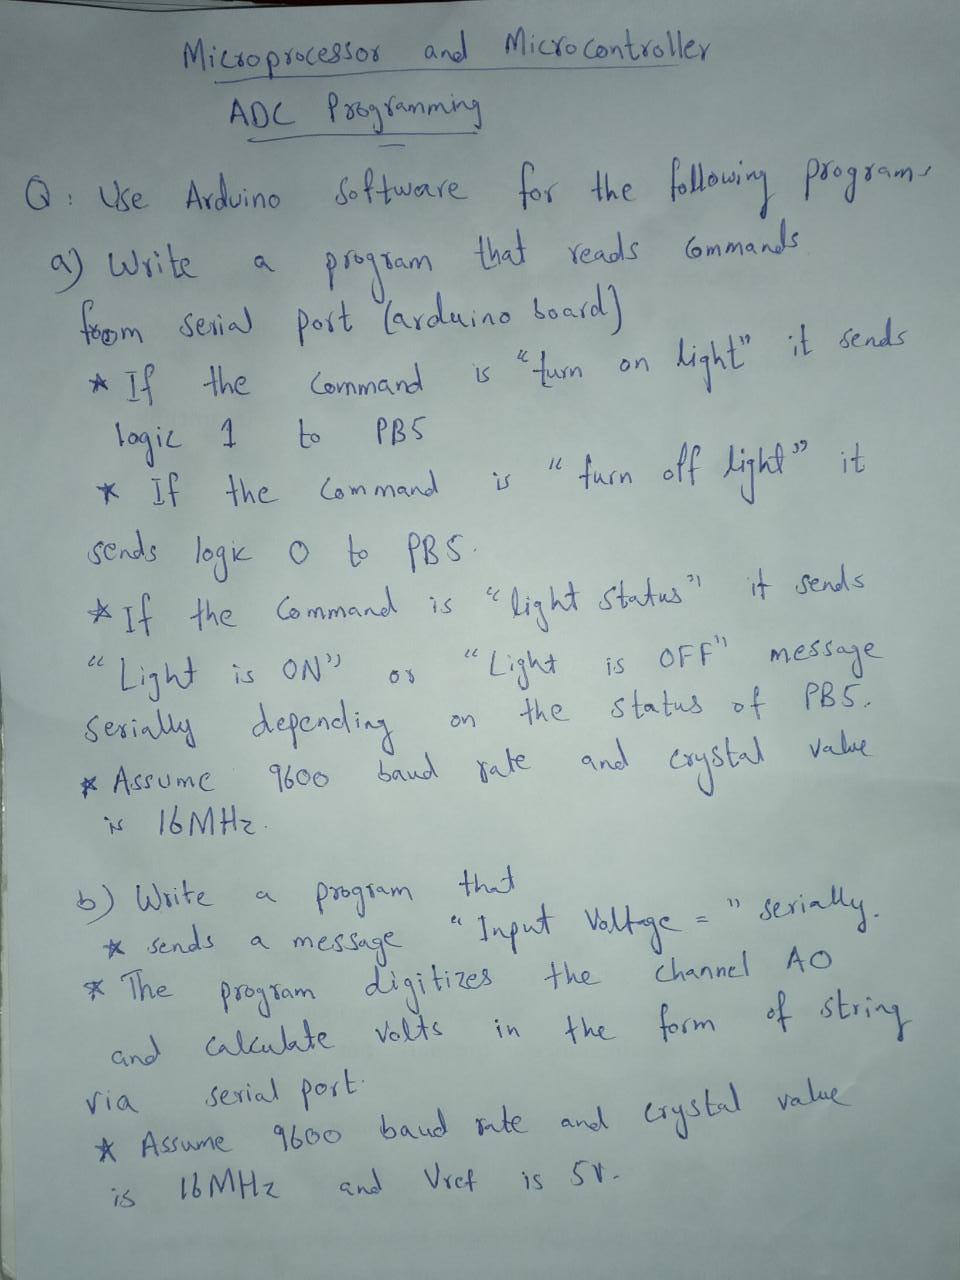 Microprocessor and Microcontroller
ADC Programming
Q: Use Arduino Software for the following programs
a) Write a program that reads Commands
from serial port (arduino board)
* If the Command is "turn on light" it sends
logic 1 to PB5
* If the Command is "turn off light" it
sends logic 0 to PB5.
* If the Command is "light status" it sends
"Light is ON" or "Light is OFF" message
serially depending on the status of PB5.
* Assume 9600 baud rate and crystal value
is 16MHz.
b) Write a program that
* sends a message "Input Voltage = " serially.
* The program digitizes the channel A0
and calculate volts in the form of string
via serial port.
* Assume 9600 baud rate and crystal value
is 16MHz and Vref is 5V.